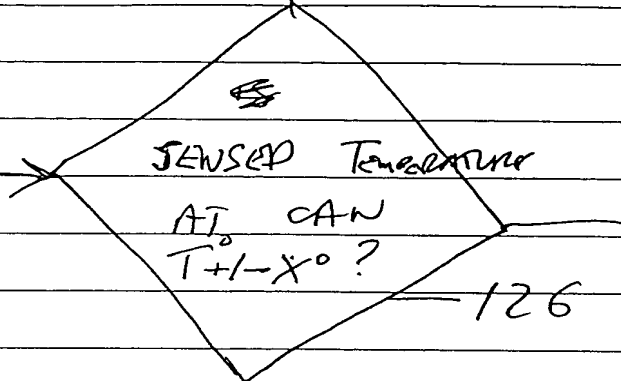 SENSED TEMPERATURE
AT CAN
T°+/-X° ?
126